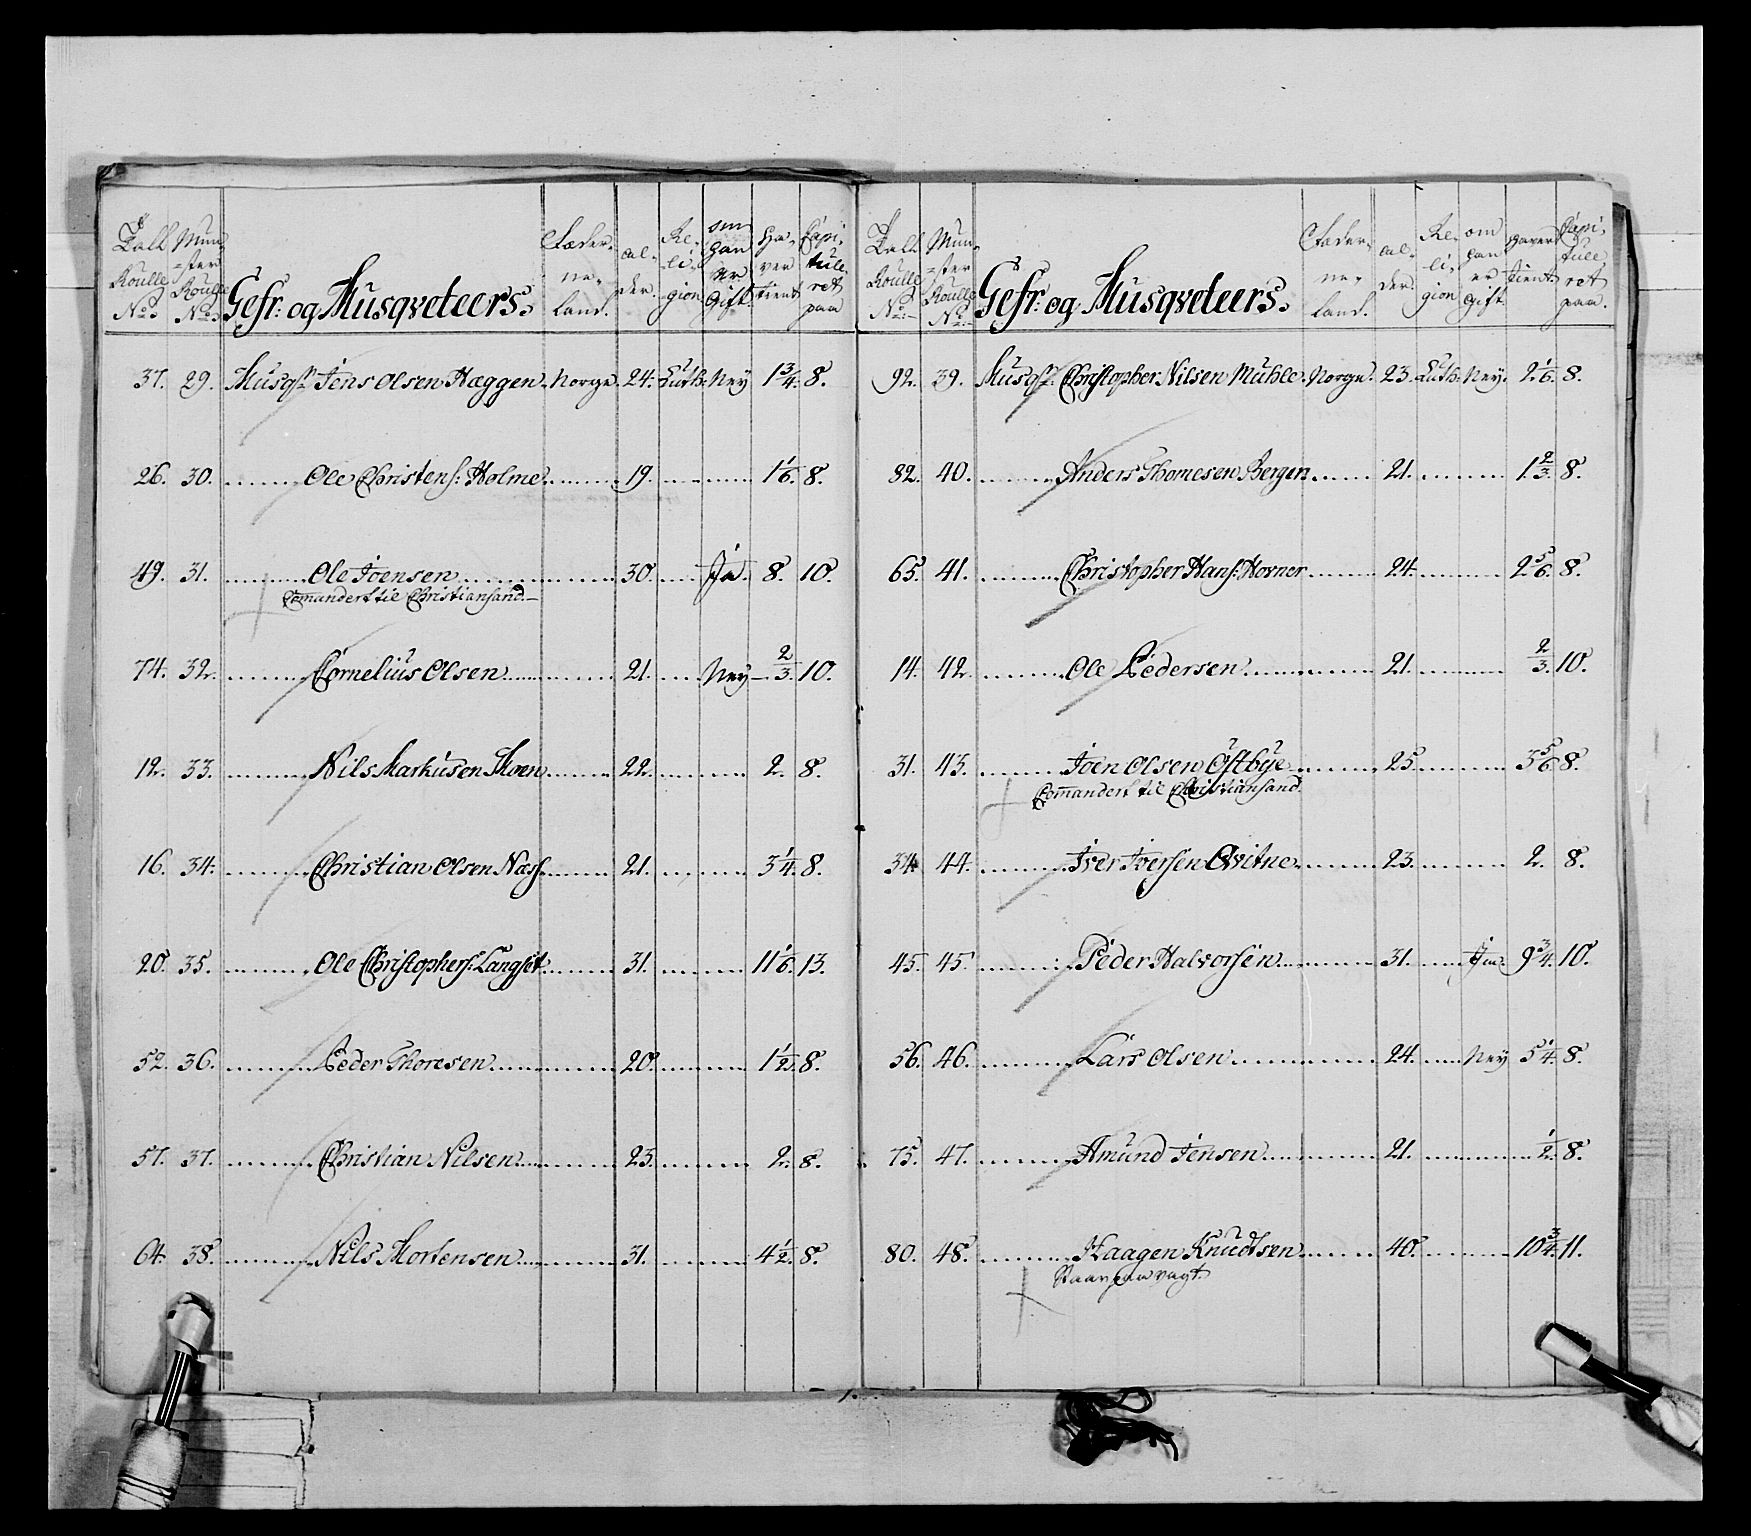 Tall Roulle No: Mun-ster Roulle No: Gefr: og Musqveteers. Fæder-ne-land. al-der. Re-li-gion om han er Gift. Ha-ver tient Capi-tule-ret paa
37. 29. Musqt: Jens Olsen Hæggen. Norge. 24. Luth: Ney 1 3/4. 8.
26. 30. Ole Christens: Holme 19. 1 1/6. 8.
49. 31. Ole Joensen 30. Ja. 8. 10.
Comandert til Christiansand.
74. 32. Cornelius Olsen 21. Ney 2/3. 10.
12. 33. Nils Markusen Moen 22. 2. 8.
16. 34. Christian Olsen Næss 21. 3 1/4. 8.
20. 35. Ole Christophers: Langset 31. 11 1/6. 13.
52. 36. Peder Thoresen 20. 1 1/2. 8.
57. 37. Christian Nilsen 23. 2. 8.
64. 38. Nils Mortensen 31. 4 1/2. 8.
Tall Roulle No: Mun-ster Roulle No: Gefr: og Musqveteers. Fæder-ne-land. al-der. Re-li-gion om han er Gift. haver tient. Capi-tule-ret paa.
92. 39. Musqt: Christopher Nilsen Muhle. Norge. 23. Luth: Ney. 2 1/6. 8.
82. 40. Anders Thomesen Bergen 21. 1 2/3. 8.
65. 41. Christopher Hans: Horner 24. 2 5/6. 8.
14. 42. Ole Pedersen 21. 2/3. 10.
31. 43. Joen Olsen Østbye 25. 3 5/6. 8.
Comandert til Christiansand
34. 44. Iver Iversen Qvitne 23. 2. 8.
45. 45. Peder Halvorsen 31. Ja. 9 3/4. 10.
56. 46. Lars Olsen 24. Ney 5 1/4. 8.
75. 47. Amund Jensen 21. 1/2. 8.
80. 48. Haagen Knudtsen 40. 10 3/4. 11.
Staar paa vagt.